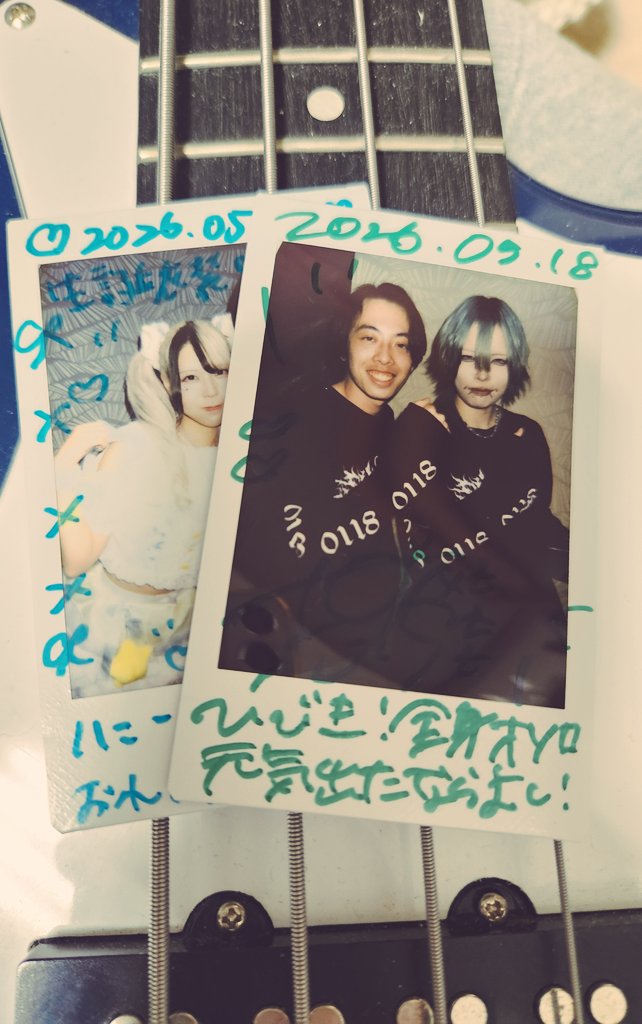 2026.05
生誕衣装
ハニー
おれ
2026.09.18
0118
0118
0118
0118
ひびき!全身オソロ
元気出たならよし!